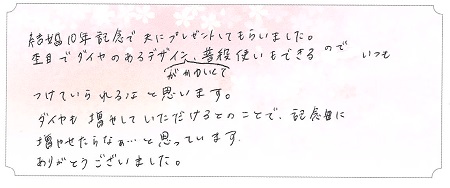 結婚10年記念で夫にプレゼントしてもらいました。
杢目でダイヤのあるデザインがかわいくて、普段使いもできるので いつも
つけていられるなと思います。
ダイヤも増やしていただけるとのことで、記念日に
増やせたらなぁ…と思っています。
ありがとうございました。